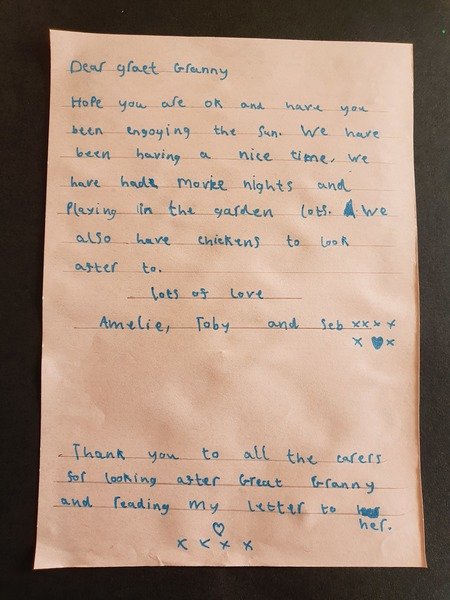 Dear graet Granny
Hope you are ok and have you
been engoying the sun. We have
been having a nice time. we
have had movie nights and
Playing in the garden lots. We
also have chickens to look
after to.
lots of love
Amelie, Toby and Seb xxxx
x ♥ x
Thank you to all the carers
for looking after Great Granny
and reading my letter to
her.
♡
x x x x